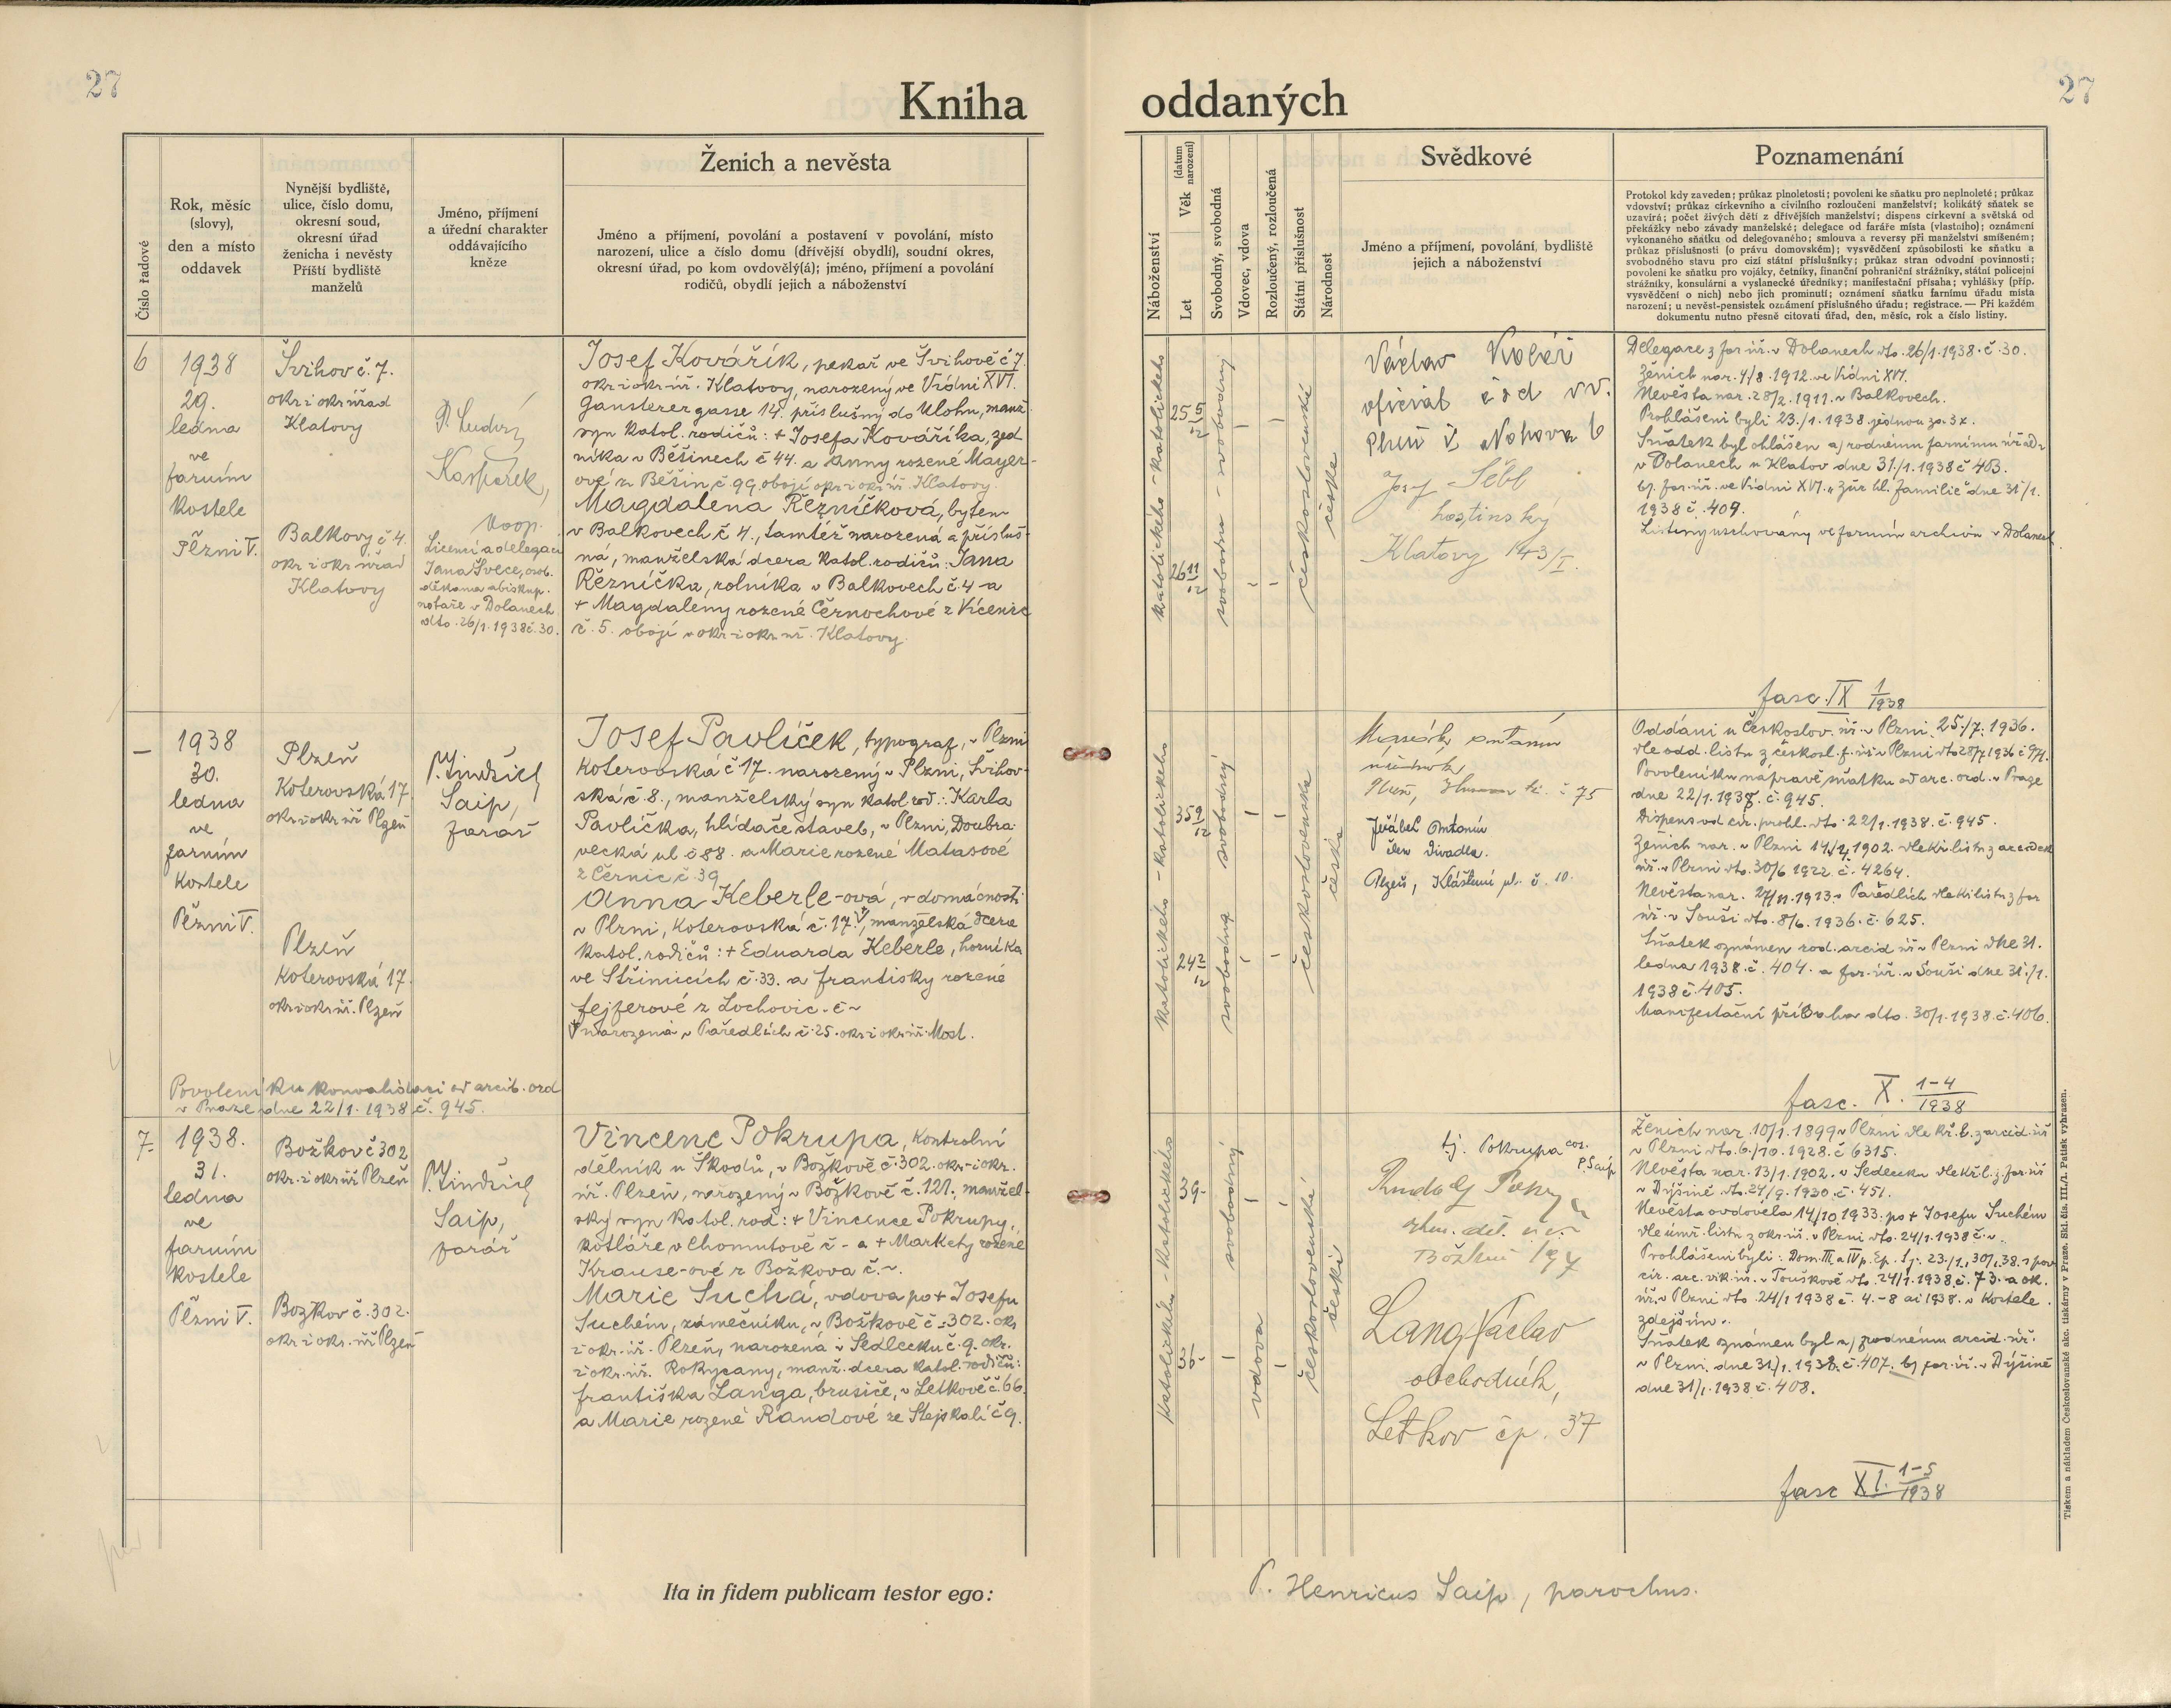 27
Kniha
oddaných
27
Číslo řadové
Rok, měsíc
(slovy),
den a místo
oddavek
Nynější bydliště,
ulice, číslo domu,
okresní soud,
okresní úřad
ženicha i nevěsty
Příští bydliště
manželů
Jméno, příjmení
a úřední charakter
oddávajícího
kněze
Ženich a nevěsta
Jméno a příjmení, povolání a postavení v povolání, místo
narození, ulice a číslo domu (dřívější obydlí), soudní okres,
okresní úřad, po kom ovdovělý(á); jméno, příjmení a povolání
rodičů, obydlí jejich a náboženství
Náboženství
Věk (datum narození)
Let
Svobodný, svobodná
Vdovec, vdova
Rozloučený, rozloučená
Státní příslušnost
Národnost
Svědkové
Jméno a příjmení, povolání, bydliště
jejich a náboženství
Poznamenání
Protokol kdy zaveden; průkaz plnoletosti; povolení ke sňatku pro neplnoleté; průkaz
vdovství; průkaz církevního a civilního rozloučení manželství; kolikátý sňatek se
uzavírá; počet živých dětí z dřívějších manželství; dispens církevní a světská od
překážky nebo závady manželské; delegace od faráře místa (vlastního); oznámení
vykonaného sňatku od delegovaného; smlouva a reversy při manželství smíšeném;
průkaz příslušnosti (o právu domovském); vysvědčení způsobilosti ke sňatku a
svobodného stavu pro cizí státní příslušníky; průkaz stran odvodní povinnosti;
povolení ke sňatku pro vojáky, četníky, finanční pohraniční strážníky, státní policejní
strážníky, konsulární a vyslanecké úředníky; manifestační přísaha; vyhlášky (příp.
vysvědčení o nich) nebo jich prominutí; oznámení sňatku farnímu úřadu místa
narození; u nevěst-pensistek oznámení příslušného úřadu; registrace. — Při každém
dokumentu nutno přesně citovati úřad, den, měsíc, rok a číslo listiny.
6
1938
29.
ledna
ve
farním
kostele
Plzni V.
Švihov č. 7.
okr. i okr. úřad
Klatovy
Balkovy č 4.
okr. i okr. úřad
Klatovy
P. Ludvík
Kašpárek,
koop.
Licencí a delegací
Jana Švece, osob.
děkana a biskup.
notáře v Dolanech
dto. 26/1. 1938 č. 30.
Josef Kovářík, pekař ve Švihově č 7.
okr. i okr. úř. Klatovy, narozený ve Vídni XVI.
Gansterergasse 14. příslušný do Ulohu, manž.
syn katol. rodičů: + Josefa Kováříka, zed
níka v Běšinech č 44. a Anny rozené Mayer-
ové z Běšin, č 99. obojí okr. i okr. úř. Klatovy.
Magdalena Řezníčková, bytem
v Balkovech č 4., tamtéž narozená a přísluš-
ná, manželská dcera katol. rodičů: Jana
Řezníčka, rolníka v Balkovech č. 4 - a
+ Magdaleny rozené Černochové z Vícenic
č. 5. obojí v okr. i okr. úř. Klatovy.
katolického - katolického
25 5/12
26 11/12
svobodna - svobodný
československé
česká
Václav Kolář
oficiál čsd v.v.
Plzeň
Josef Šébl
hostinský
Klatovy 143/I.
Delegace z far. úř. v Dolanech dto. 26/1. 1938. č. 30.
Ženich nar. 4/8. 1912. ve Vídni XVI.
Nevěsta nar. 28/2. 1911. v Balkovech.
Prohlášeni byli 23./1. 1938 jednou za 3x.
Sňatek byl ohlášen a) rodnému farnímu úřadu
v Dolanech u Klatov dne 31./1. 1938 č 403.
b) far. úř. ve Vídni XVI. „Zür hl. Familie" dne 31/1.
1938 č. 409.
Listiny uschovány ve farním archivu v Dolanech
fasc. IX 1/1938
—
1938
30.
ledna
ve
farním
kostele
Plzni V.
Plzeň
Koterovská 17.
okr. i okr. úř. Plzeň
Plzeň
Koterovská 17.
okr. i okr. úř. Plzeň
P. Jindřich
Saip,
farář
Povolení ku konvalidaci od arcib. ord
v Praze dne 22/1. 1938 č. 945.
Josef Pavlíček, typograf, v Plzni
Koterovská č 17. narozený v Plzni, Švihov-
ská č 8., manželský syn katol. rod.: Karla
Pavlíčka, hlídače staveb, v Plzni, Doubra-
vecká ul. č 88. a Marie rozené Matasové
z Černic č 39
Anna Keberle-ová, v domácnosti
v Plzni, Koterovská č. 17., manželská dcera
katol. rodičů: + Eduarda Keberle, horníka
ve Střimicích č. 33. a Františky rozené
Fejferové z Lochovic. č ~
narozená v Pařidlích č. 25. okr. i okr. úř. Most.
katolického - katolického
35 9/12
24 2/12
svobodná svobodný
československé
česká
Antonín
Plzeň, č. 75
Jeřábek Antonín
člen divadla.
Plzeň, Klášterní ul. č. 10.
Oddáni u Českoslov. úř. v Plzni. 25./7. 1936.
dle odd. listu z českosl. f. úř. v Plzni dto 28/7 1936 č 97.
Povolení ku nápravě sňatku od arc. ord. v Praze
dne 22/1. 1938. č. 945.
Dispens od cír. prohl. dto. 22/1. 1938. č. 945.
Ženich nar. v Plzni 14/4. 1902. dle kř. listu z arciděk.
úř. v Plzni dto. 30/6 1922. č. 4264.
Nevěsta nar. 27/11. 1913 v Pařidlích dle kř. listu z far
úř. v Souši dto. 8/6. 1936. č. 625.
Sňatek oznámen rod. arcid. úř. v Plzni dne 31.
ledna 1938. č. 404. a far. úř. v Souši dne 31./1.
1938 č. 405.
Manifestační přísaha dto. 30/1. 1938. č. 406.
fasc. X. 1-4/1938
7.
1938.
31.
ledna
ve
farním
kostele
Plzni V.
Božkov č 302
okr. i okr. úř. Plzeň
Božkov č. 302.
okr. i okr. úř. Plzeň
P. Jindřich
Saip,
farář
Vincenc Pokrupa, kontrolní
dělník u Škodů, v Božkově č. 302. okr. i okr.
úř. Plzeň, narozený v Božkově č. 121., manžel-
ský syn katol. rod: + Vincence Pokrupy,
kotláře v Chomutově č - a + Markety rozené
Krause-ové z Božkova č. ~.
Marie Suchá, vdova po + Josefu
Suchém, zámečníku, v Božkově č. 302. okr.
i okr. úř. Plzeň, narozená v Sedlecku č. 9. okr.
i okr. úř. Rokycany, manž. dcera katol. rodičů:
Františka Langa, brusiče, v Letkově č. 66.
a Marie rozené Randové ze Stejskalí č 9.
katolického - katolického
39.
36-
svobodný
vdova
československé
české
tj. Pokrupa cos.
P. Saip
Rudolf
Božkov 194
Lang Václav
obchodník,
Letkov čp. 37
Ženich nar. 10/1. 1899 v Plzni dle kř. l. z arcid. úř
v Plzni dto. 6./10. 1928. č 6315.
Nevěsta nar. 13/1. 1902. v Sedlecku dle kř. l. z far. úř
v Dýšině dto. 24/9. 1930. č. 451.
Nevěsta ovdověla 14/10 1933. po + Josefu Suchém
dle úmr. listu z okr. úř. v Plzni dto. 24/1. 1938 č. ~.
Prohlášeni byli: Dom. III. a IV p. Ep. tj. 23./1., 30/1. 38. s pov
cír. arc. vik. úř. v Touškově dto. 24/1. 1938. č. 73. a ok.
úř. v Plzni dto. 24/1 1938 č. 4.-8 ai 1938. v kostele
zdejším.
Sňatek oznámen byl a) rodnému arcid. úř.
v Plzni dne 31./1. 1938. č. 407. b) far. úř. v Dýšině
dne 31/1. 1938 č. 408.
fasc XI. 1-5/1938
Ita in fidem publicam testor ego:
P. Henricus Saip, parochus.
Tiskem a nákladem Československé akc. tiskárny v Praze. Skl. čís. III./1. Patisk vyhrazen.